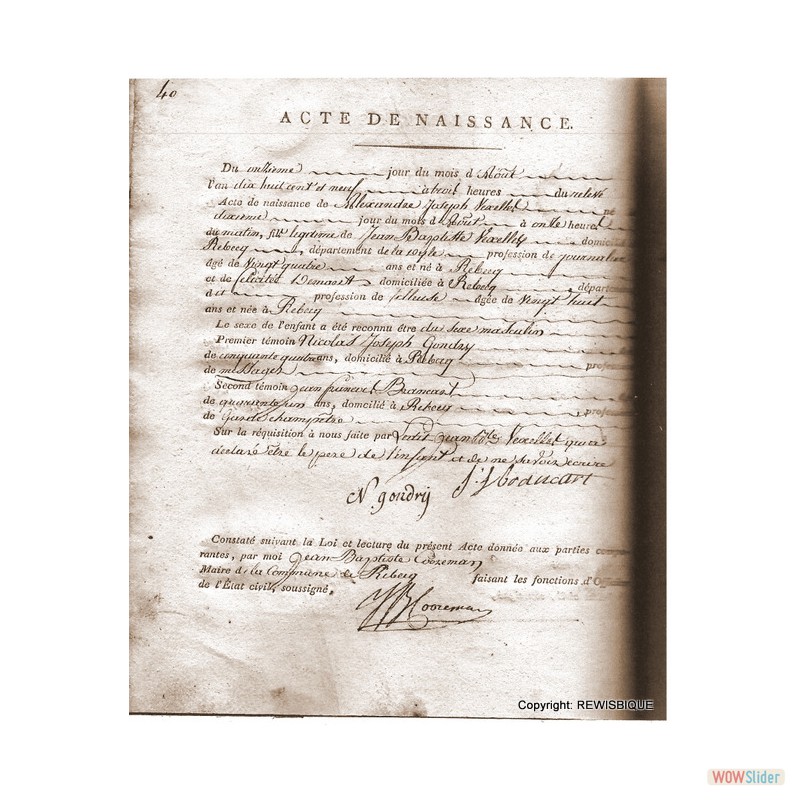 40
ACTE DE NAISSANCE.
Du onzieme jour du mois d'Août
l'an dix huit cent et neuf à trois heures du relevé
Acte de naissance de Alexandre Joseph Vexellet né
dixieme jour du mois d'Août à onze heures
du matin, fils légitime de Jean Baptiste Vexellet domicilié
Rebecq, département de la profession de journalier
âgé de vingt quatre ans et né à Rebecq
et de félicité Demaret domiciliée à Rebecq départem
dit profession de fileuse âgée de vingt huit
ans et née à Rebecq
Le sexe de l'enfant a été reconnu être du sexe masculin
Premier témoin Nicolas Joseph Gondry
de cinquante quatre ans, domicilié à Rebecq profes
de messager
Second témoin jean Bramart
de quarante un ans, domicilié à Rebecq profess
de Garde champetre
Sur la réquisition à nous faite par ledit jean bte Vexellet qui a
declaré être le pere de l'enfant et de ne savoir écrire
N gondry
Constaté suivant la Loi et lecture du présent Acte donnée aux parties compa-
rantes, par moi Jean Baptiste Coozeman
Maire de la Commune de Rebecq faisant les fonctions d'Officier
de l'État civil, soussigné.
Coozeman
Copyright: REWISBIQUE
WOWSlider